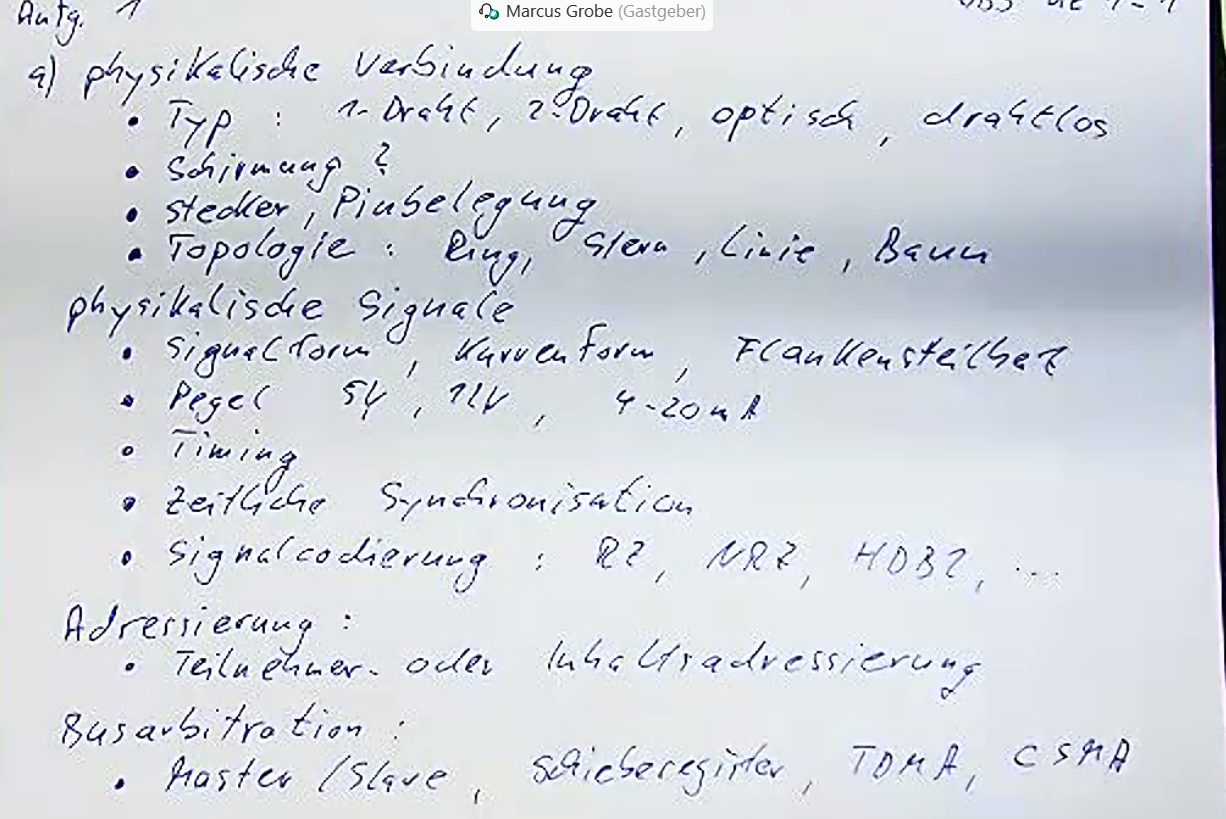 Marcus Grobe (Gastgeber)
Aufg. 1
a) physikalische Verbindung
• Typ : 1-Draht, 2-Draht, optisch, drahtlos
• Schirmung ?
• Stecker, Pinbelegung
• Topologie : Ring, Stern, Linie, Baum
physikalische Signale
• Signalform, Kurvenform, Flankensteilheit
• Pegel 5V, 12V, 4-20mA
• Timing
• zeitliche Synchronisation
• Signalcodierung : RZ, NRZ, HDB3, ...
Adressierung :
• Teilnehmer- oder Inhaltsadressierung
Busarbitration :
• Master/Slave, Schieberegister, TDMA, CSMA